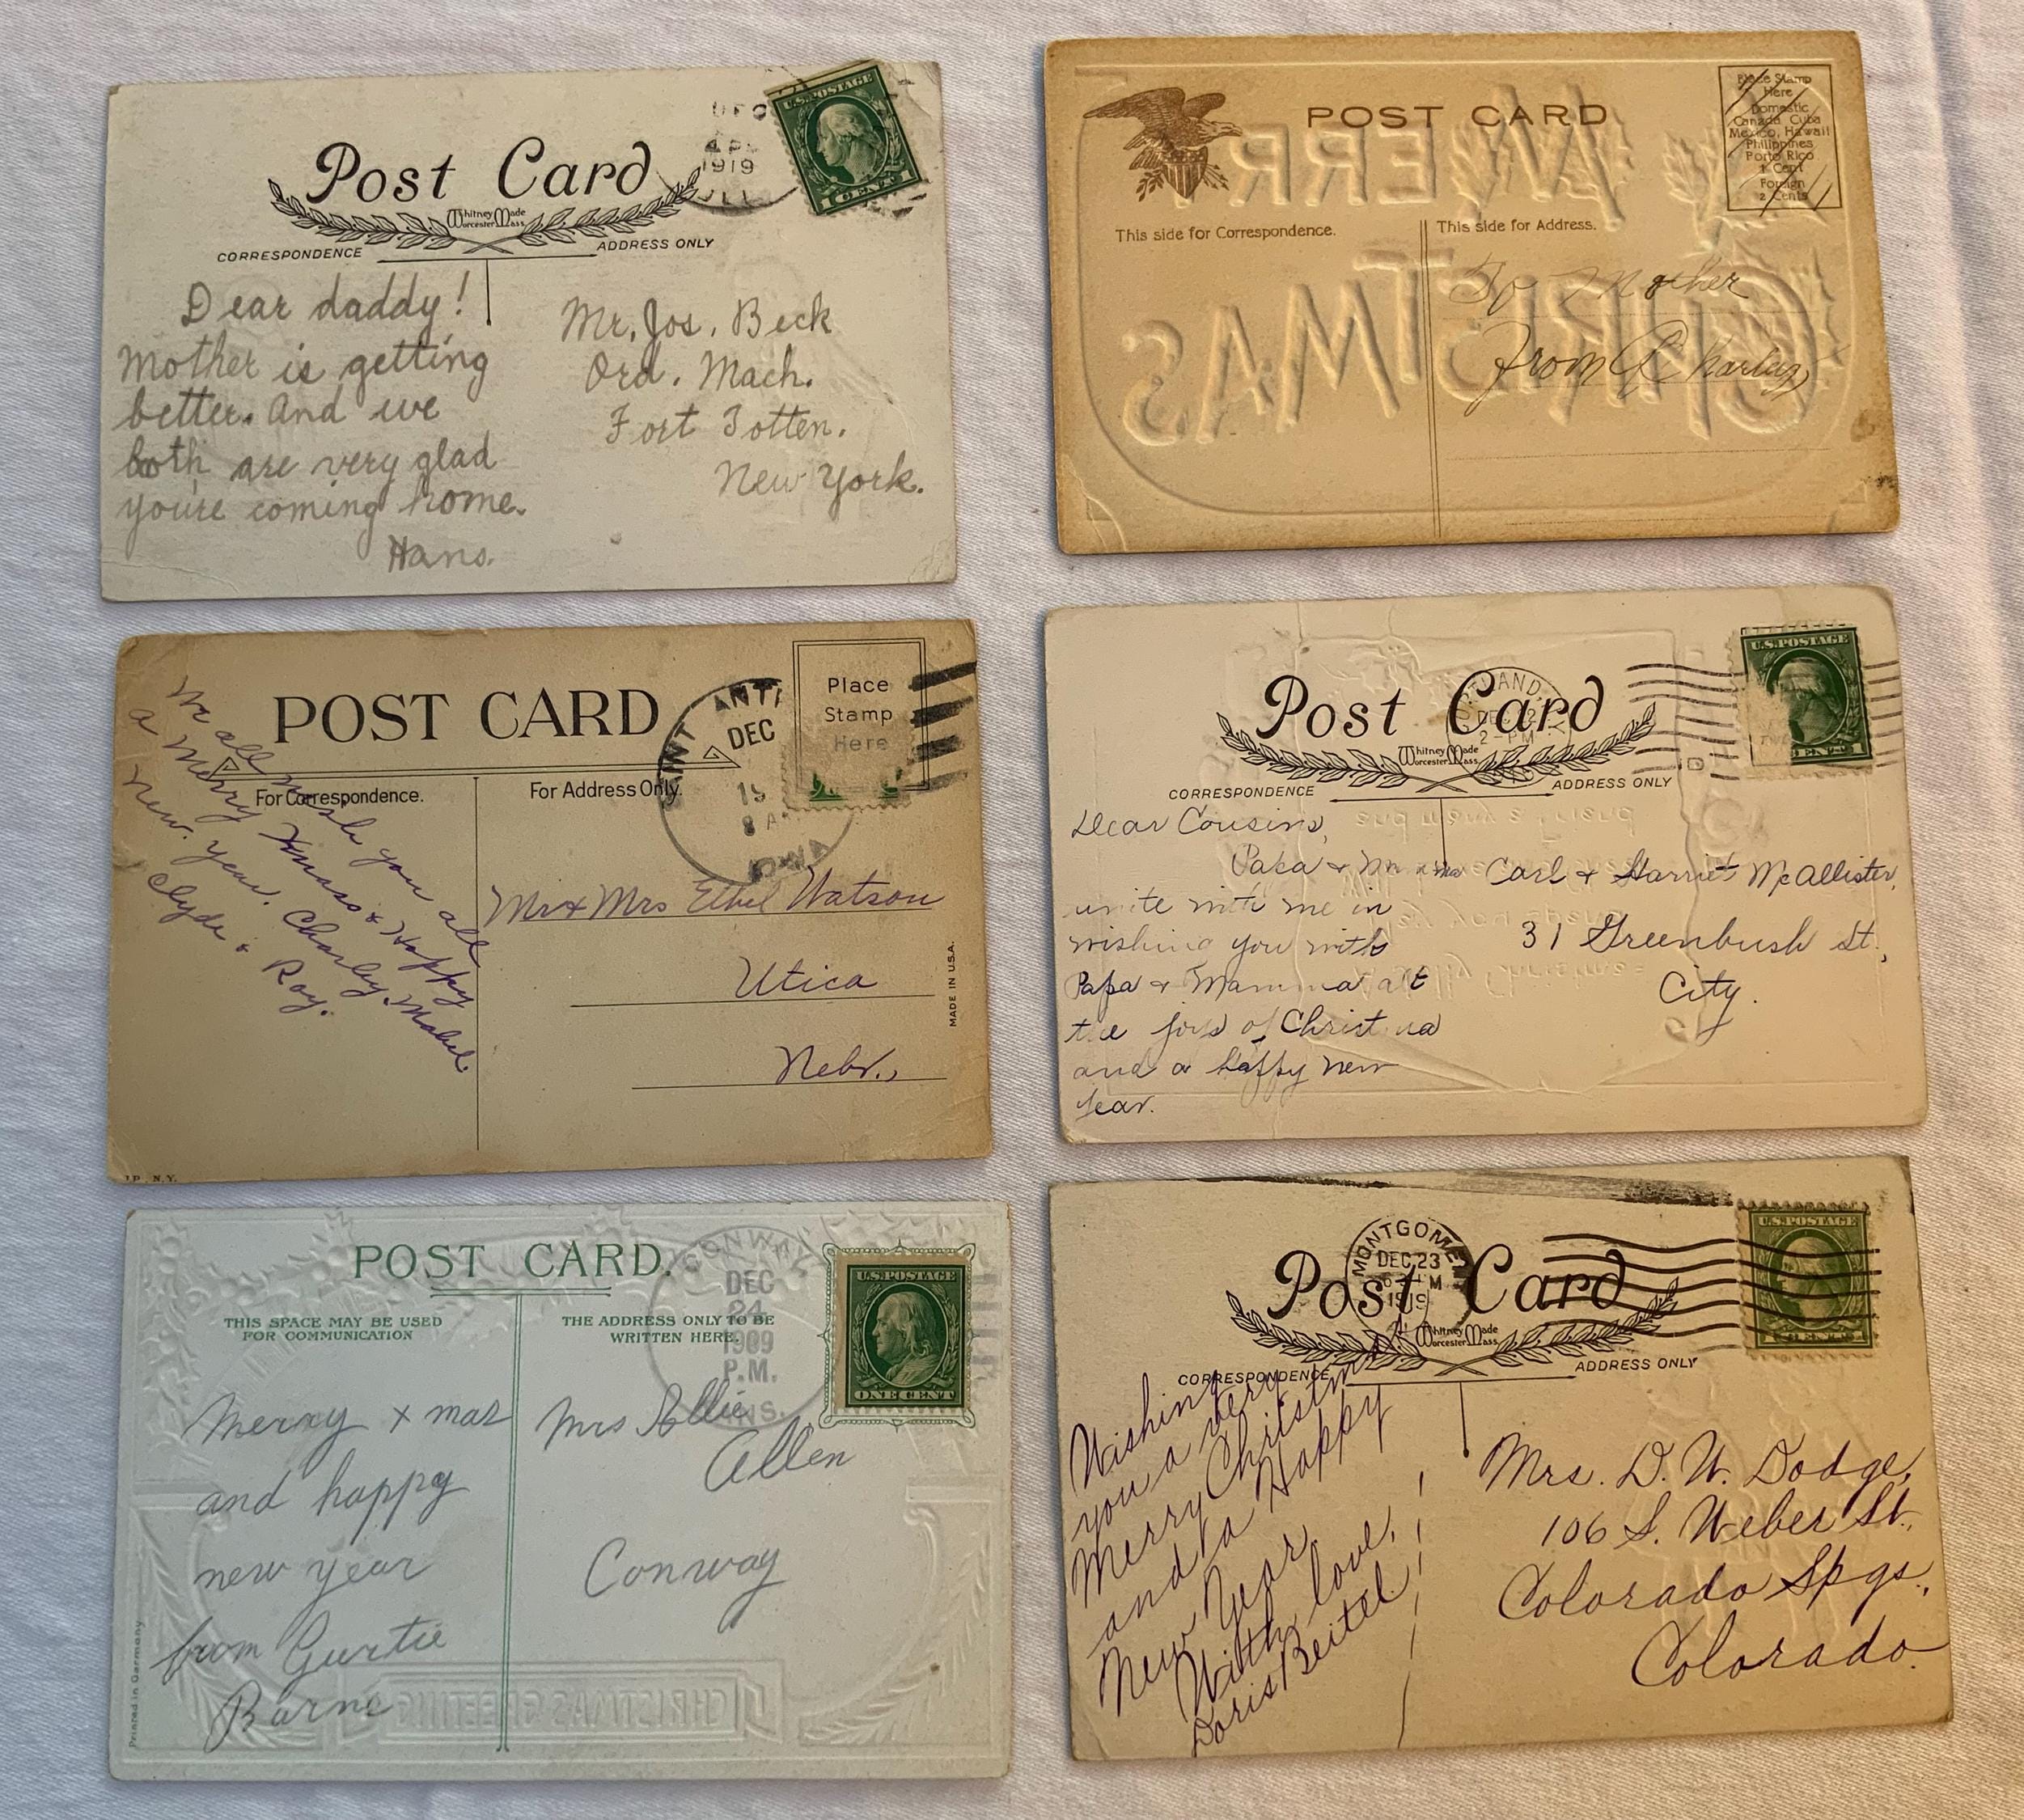 Post Card
Whitney Made
Worcester Mass.
CORRESPONDENCE
ADDRESS ONLY
1919
U.S. POSTAGE
1 CENT 1
Dear daddy!
Mother is getting
better. And we
both are very glad
you're coming home.
Hans.
Mr. Jos. Beck
Ord. Mach.
Fort Totten.
New York.
POST CARD
MERRY
CHRISTMAS
Place Stamp
Here
Domestic
Canada Cuba
Mexico, Hawaii
Philippines
Porto Rico
1 Cent
Foreign
2 Cents
This side for Correspondence.
This side for Address.
To Mother
from Charley
POST CARD
Place
Stamp
Here
SAINT ANT
DEC
19
8 A
IOWA
For Correspondence.
For Address Only.
We all wish you all
a Merry Xmas & Happy
New. year. Charley. Mabel.
Clyde & Roy.
Mr & Mrs Ethel Watson
Utica
Nebr.,
MADE IN U.S.A.
N.Y.
Post Card
Whitney Made
Worcester Mass.
CORRESPONDENCE
ADDRESS ONLY
DEC 22
2 - PM
U.S. POSTAGE
Dear Cousins,
Papa &
unite with me in
wishing you with
Papa & Mamma all
the joys of
and a happy new
year.
Carl & Harriet McAllister,
31 Greenbush St.,
City.
POST CARD.
THIS SPACE MAY BE USED
FOR COMMUNICATION
THE ADDRESS ONLY TO BE
WRITTEN HERE.
CONWAY
DEC
24
1909
P.M.
U.S. POSTAGE
ONE CENT
Merry x mas
and happy
new year
from Gurtie
Barns
Mrs Allie
Allen
Conway
CHRISTMAS GREETING
Printed in Germany
Post Card
Whitney Made
Worcester Mass.
CORRESPONDENCE
ADDRESS ONLY
MONTGOME
DEC 23
1919
U.S. POSTAGE
Wishing
you a very
Merry Chirstmas
and a Happy
New Year.
With love,
Doris Beitel.
Mrs. D. W. Dodge,
106 S. Weber St.,
Colorado Spgs.,
Colorado.